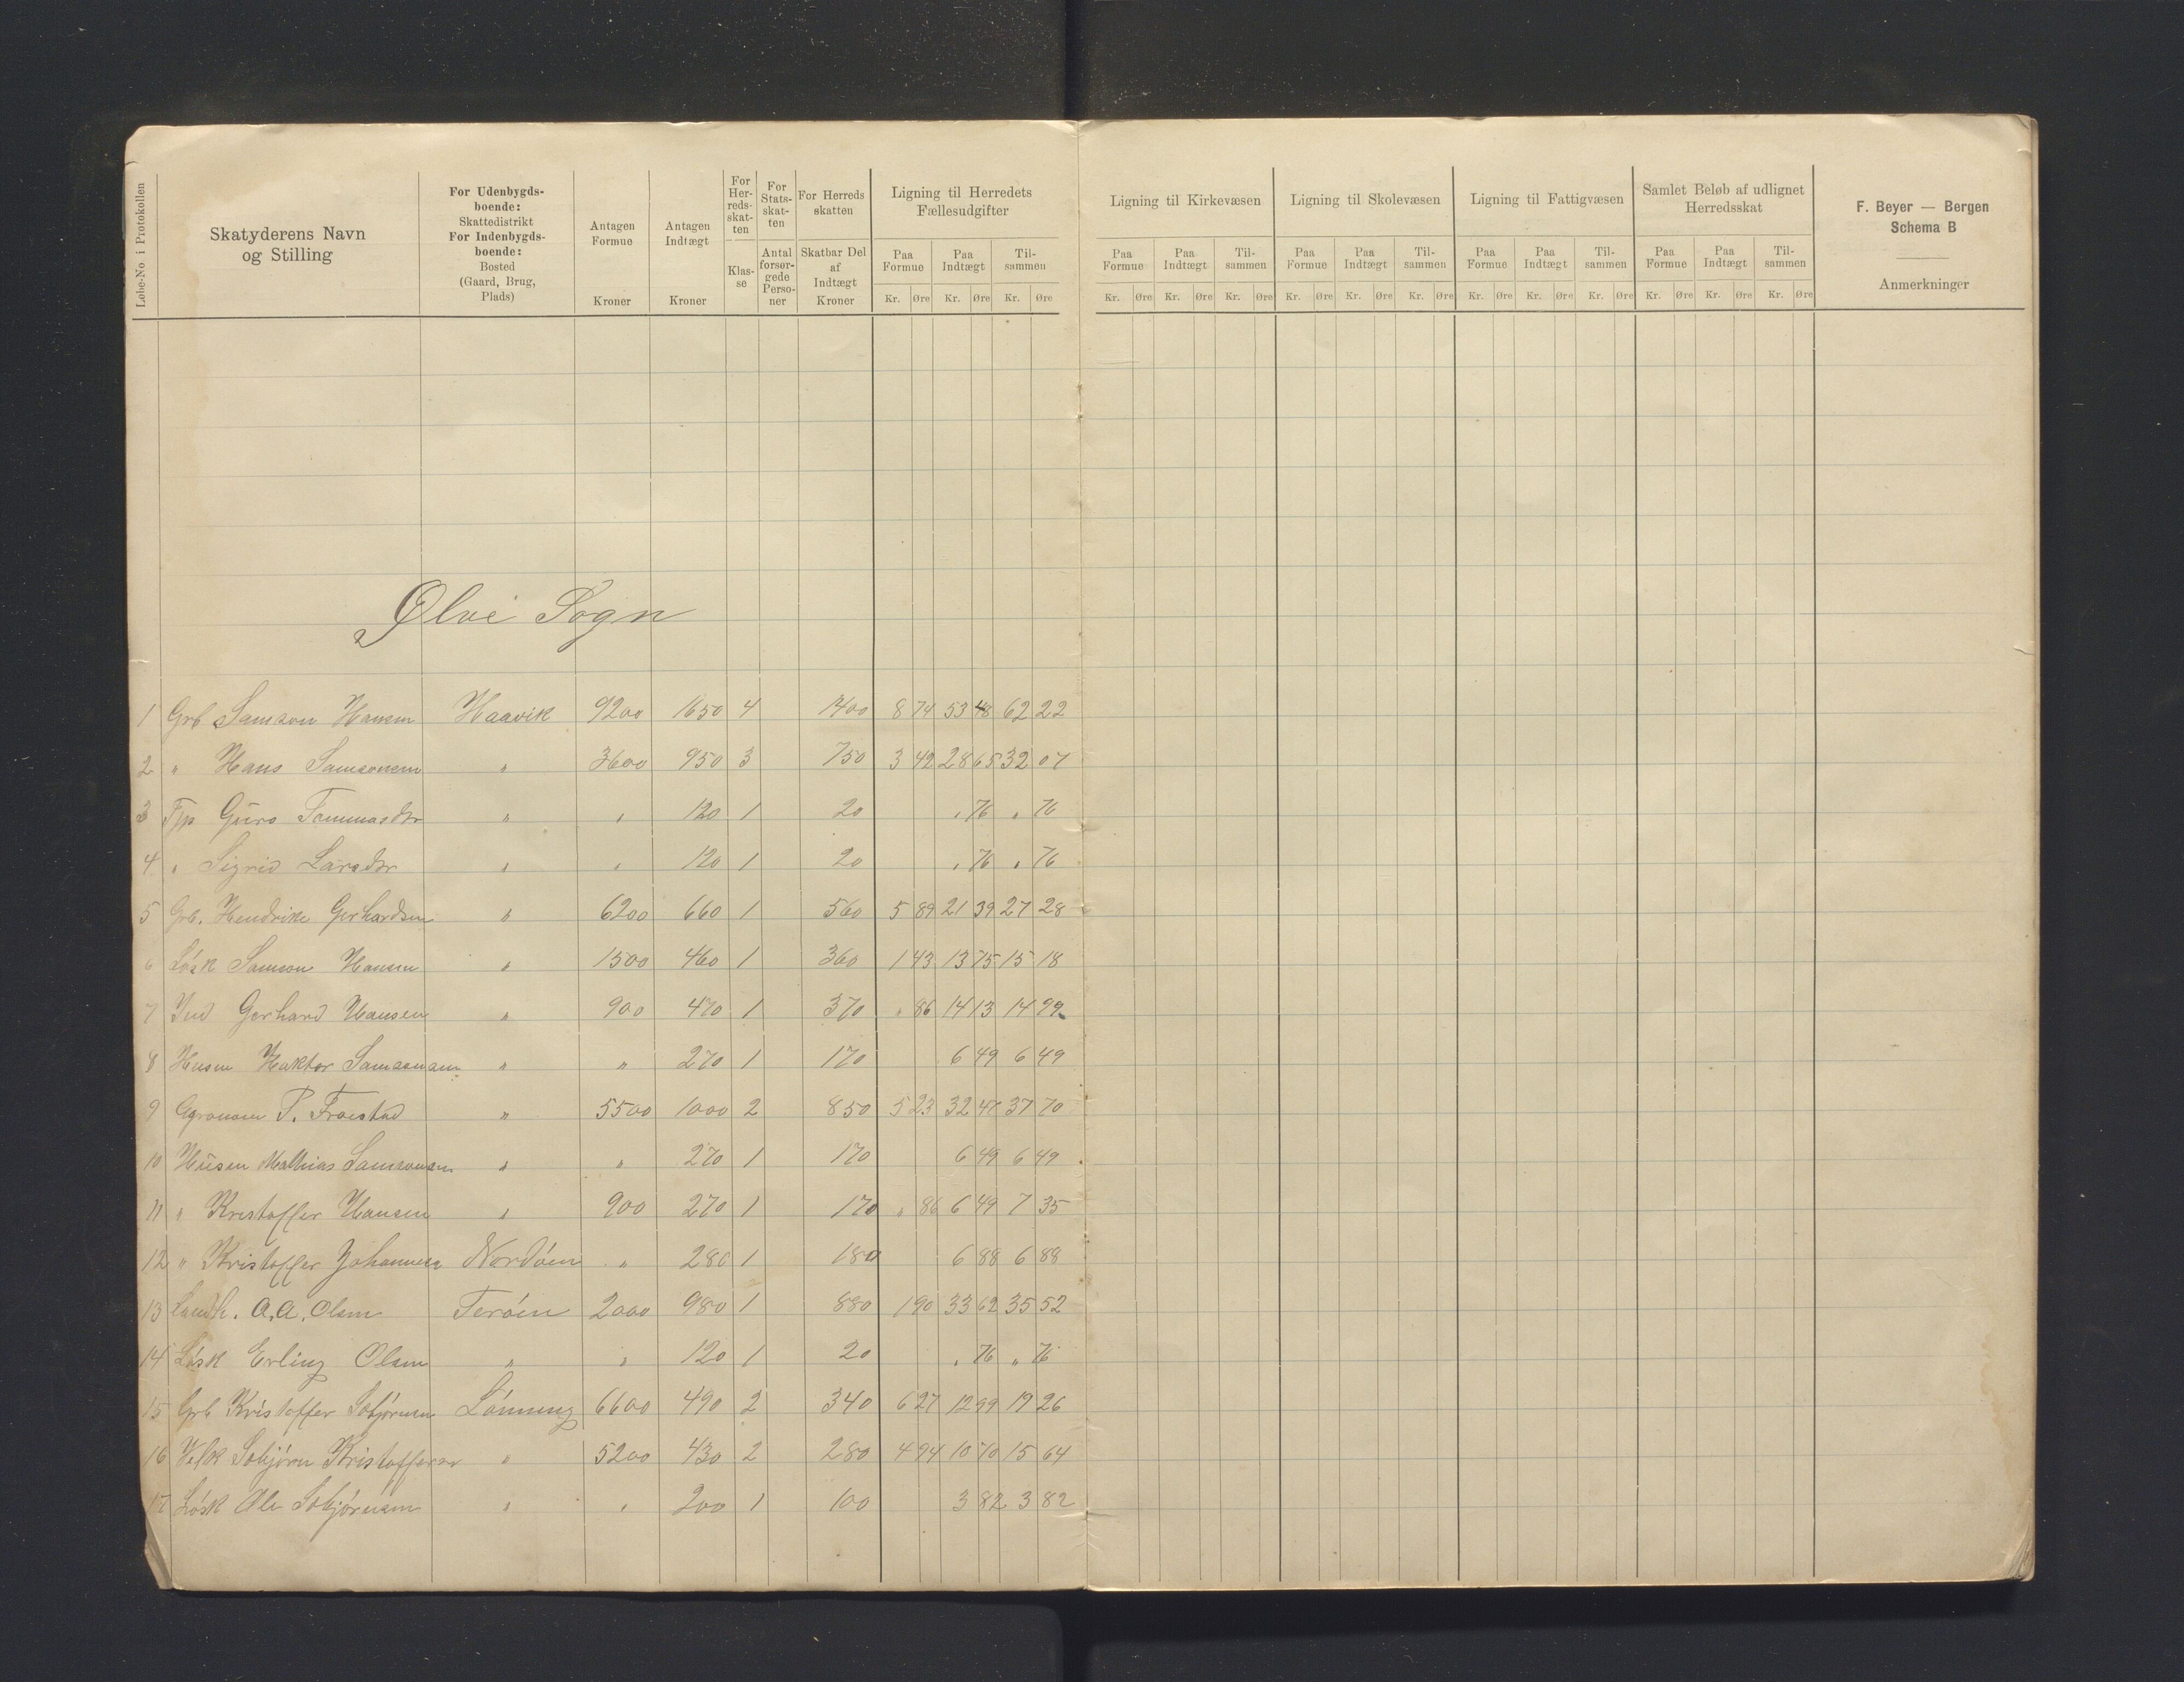 Løbe-No i Protokollen
Skatyderens Navn og Stilling
For Udenbygdsboende: Skattedistrikt For Indenbygdsboende: Bosted (Gaard, Brug, Plads)
Antagen Formue Kroner
Antagen Indtægt Kroner
For Herredsskatten Klasse
For Statsskatten Antal forsørgede Personer
For Herredsskatten Skatbar Del af Indtægt Kroner
Ligning til Herredets Fællesudgifter
Paa Formue Paa Indtægt Tilsammen
Kr. Øre Kr. Øre Kr. Øre
Ligning til Kirkevæsen
Paa Formue Paa Indtægt Tilsammen
Kr. Øre Kr. Øre Kr. Øre
Ligning til Skolevæsen
Paa Formue Paa Indtægt Tilsammen
Kr. Øre Kr. Øre Kr. Øre
Ligning til Fattigvæsen
Paa Formue Paa Indtægt Tilsammen
Kr. Øre Kr. Øre Kr. Øre
Samlet Beløb af udlignet Herredsskat
Paa Formue Paa Indtægt Tilsammen
Kr. Øre Kr. Øre Kr. Øre
F. Beyer — Bergen
Schema B
Anmerkninger
Ølve Sogn
1 Grb Samson Hansen Haavik 9200 1650 4 1400 8 74 53 48 62 22
2 " Hans Samsonsen " 3600 950 3 750 3 42 28 65 32 07
3 Guro Tommasdtr " " 120 1 20 " 76 " 76
4 " Sigrid Larsdtr " " 120 1 20 " 76 " 76
5 Grb. Hendrik Gerhardsen " 6200 660 1 560 5 89 21 39 27 28
6 Løsk Samson Hansen " 1500 460 1 360 1 43 13 75 15 18
7 Ind Gerhard Hansen " 900 470 1 370 " 86 14 13 14 99
8 Husm Haktor Samsonsen " " 270 1 170 6 49 6 49
9 Agronom P. Frøestad " 5500 1000 2 850 5 23 32 47 37 70
10 Husm Mathias Samsonsen " " 270 1 170 6 49 6 49
11 " Kristoffer Hansen " 900 270 1 170 " 86 6 49 7 35
12 " Kristoffer Johannesen Nordøen " 280 1 180 6 88 6 88
13 Landh. A. A. Olsen Terøen 2000 980 1 880 1 90 33 62 35 52
14 Løsk Erling Olsen " " 120 1 20 " 76 " 76
15 Grb Kristoffer Sebjørnsen Lønning 6600 490 2 340 6 27 12 99 19 26
16 Sebjørn Kristoffersen " 5200 430 2 280 4 94 10 70 15 64
17 Løsk Ole Sebjørnsen " " 200 1 100 3 82 3 82